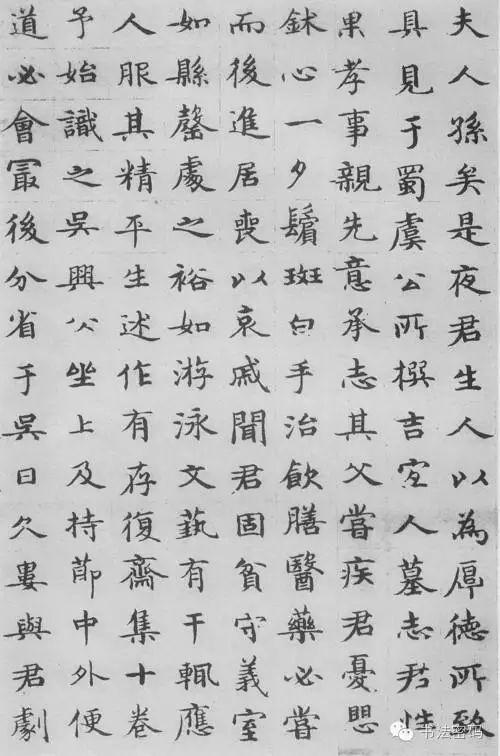 夫人孫矣是夜君生人以為厚德所致
具見于蜀虞公所撰吉宜人墓志君性
果孝事親先意承志其父嘗疾君憂愳
鉥心一夕鬢斑白手治飲膳醫藥必嘗
而後進居喪以哀戚聞君固貧守義室
如縣罄處之裕如游泳文藝有干輒應
人服其精平生述作有存復齋集十卷
予始識之吳興公坐上及持節中外便
道必會冣後分省于吳日久婁與君劇
书法密码